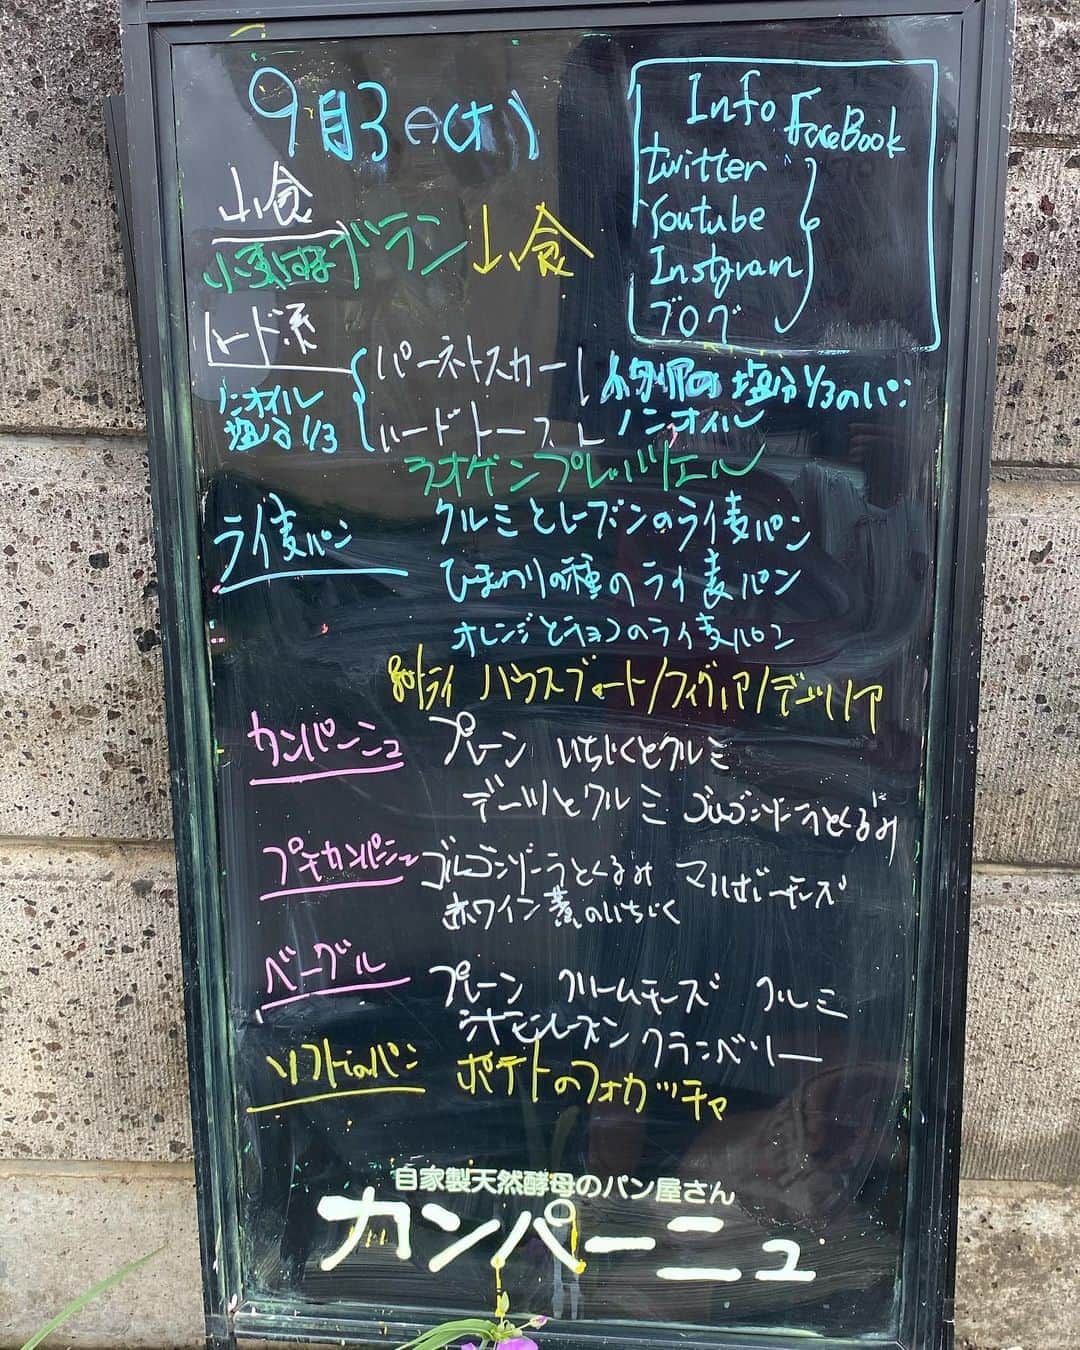 9月3日(木)
Info
FaceBook
twitter
Youtube
Instgram
ブログ
山食
小麦はま
ブラン
山食
ハード系
ノンオイル
塩分1/3
パーネトスカーノ
塩分1/3のパン
ハードトースト
ノンオイル
ラオゲンプレッツェル
ライ麦パン
クルミとレーズンのライ麦パン
ひまわりの種のライ麦パン
オレンジとチョコのライ麦パン
ライ ハウスブロート/フィグノア/デーツノア
カンパーニュ
プレーン いちじくとクルミ
デーツとクルミ ゴルゴンゾーラとくるみ
プチカンパーニュ
ゴルゴンゾーラとくるみ マルボーチーズ
赤ワイン煮のいちじく
ベーグル
プレーン クリームチーズ クルミ
シナモンレーズン クランベリー
ソフトなパン
ポテトのフォカッチャ
自家製天然酵母のパン屋さん
カンパーニュ